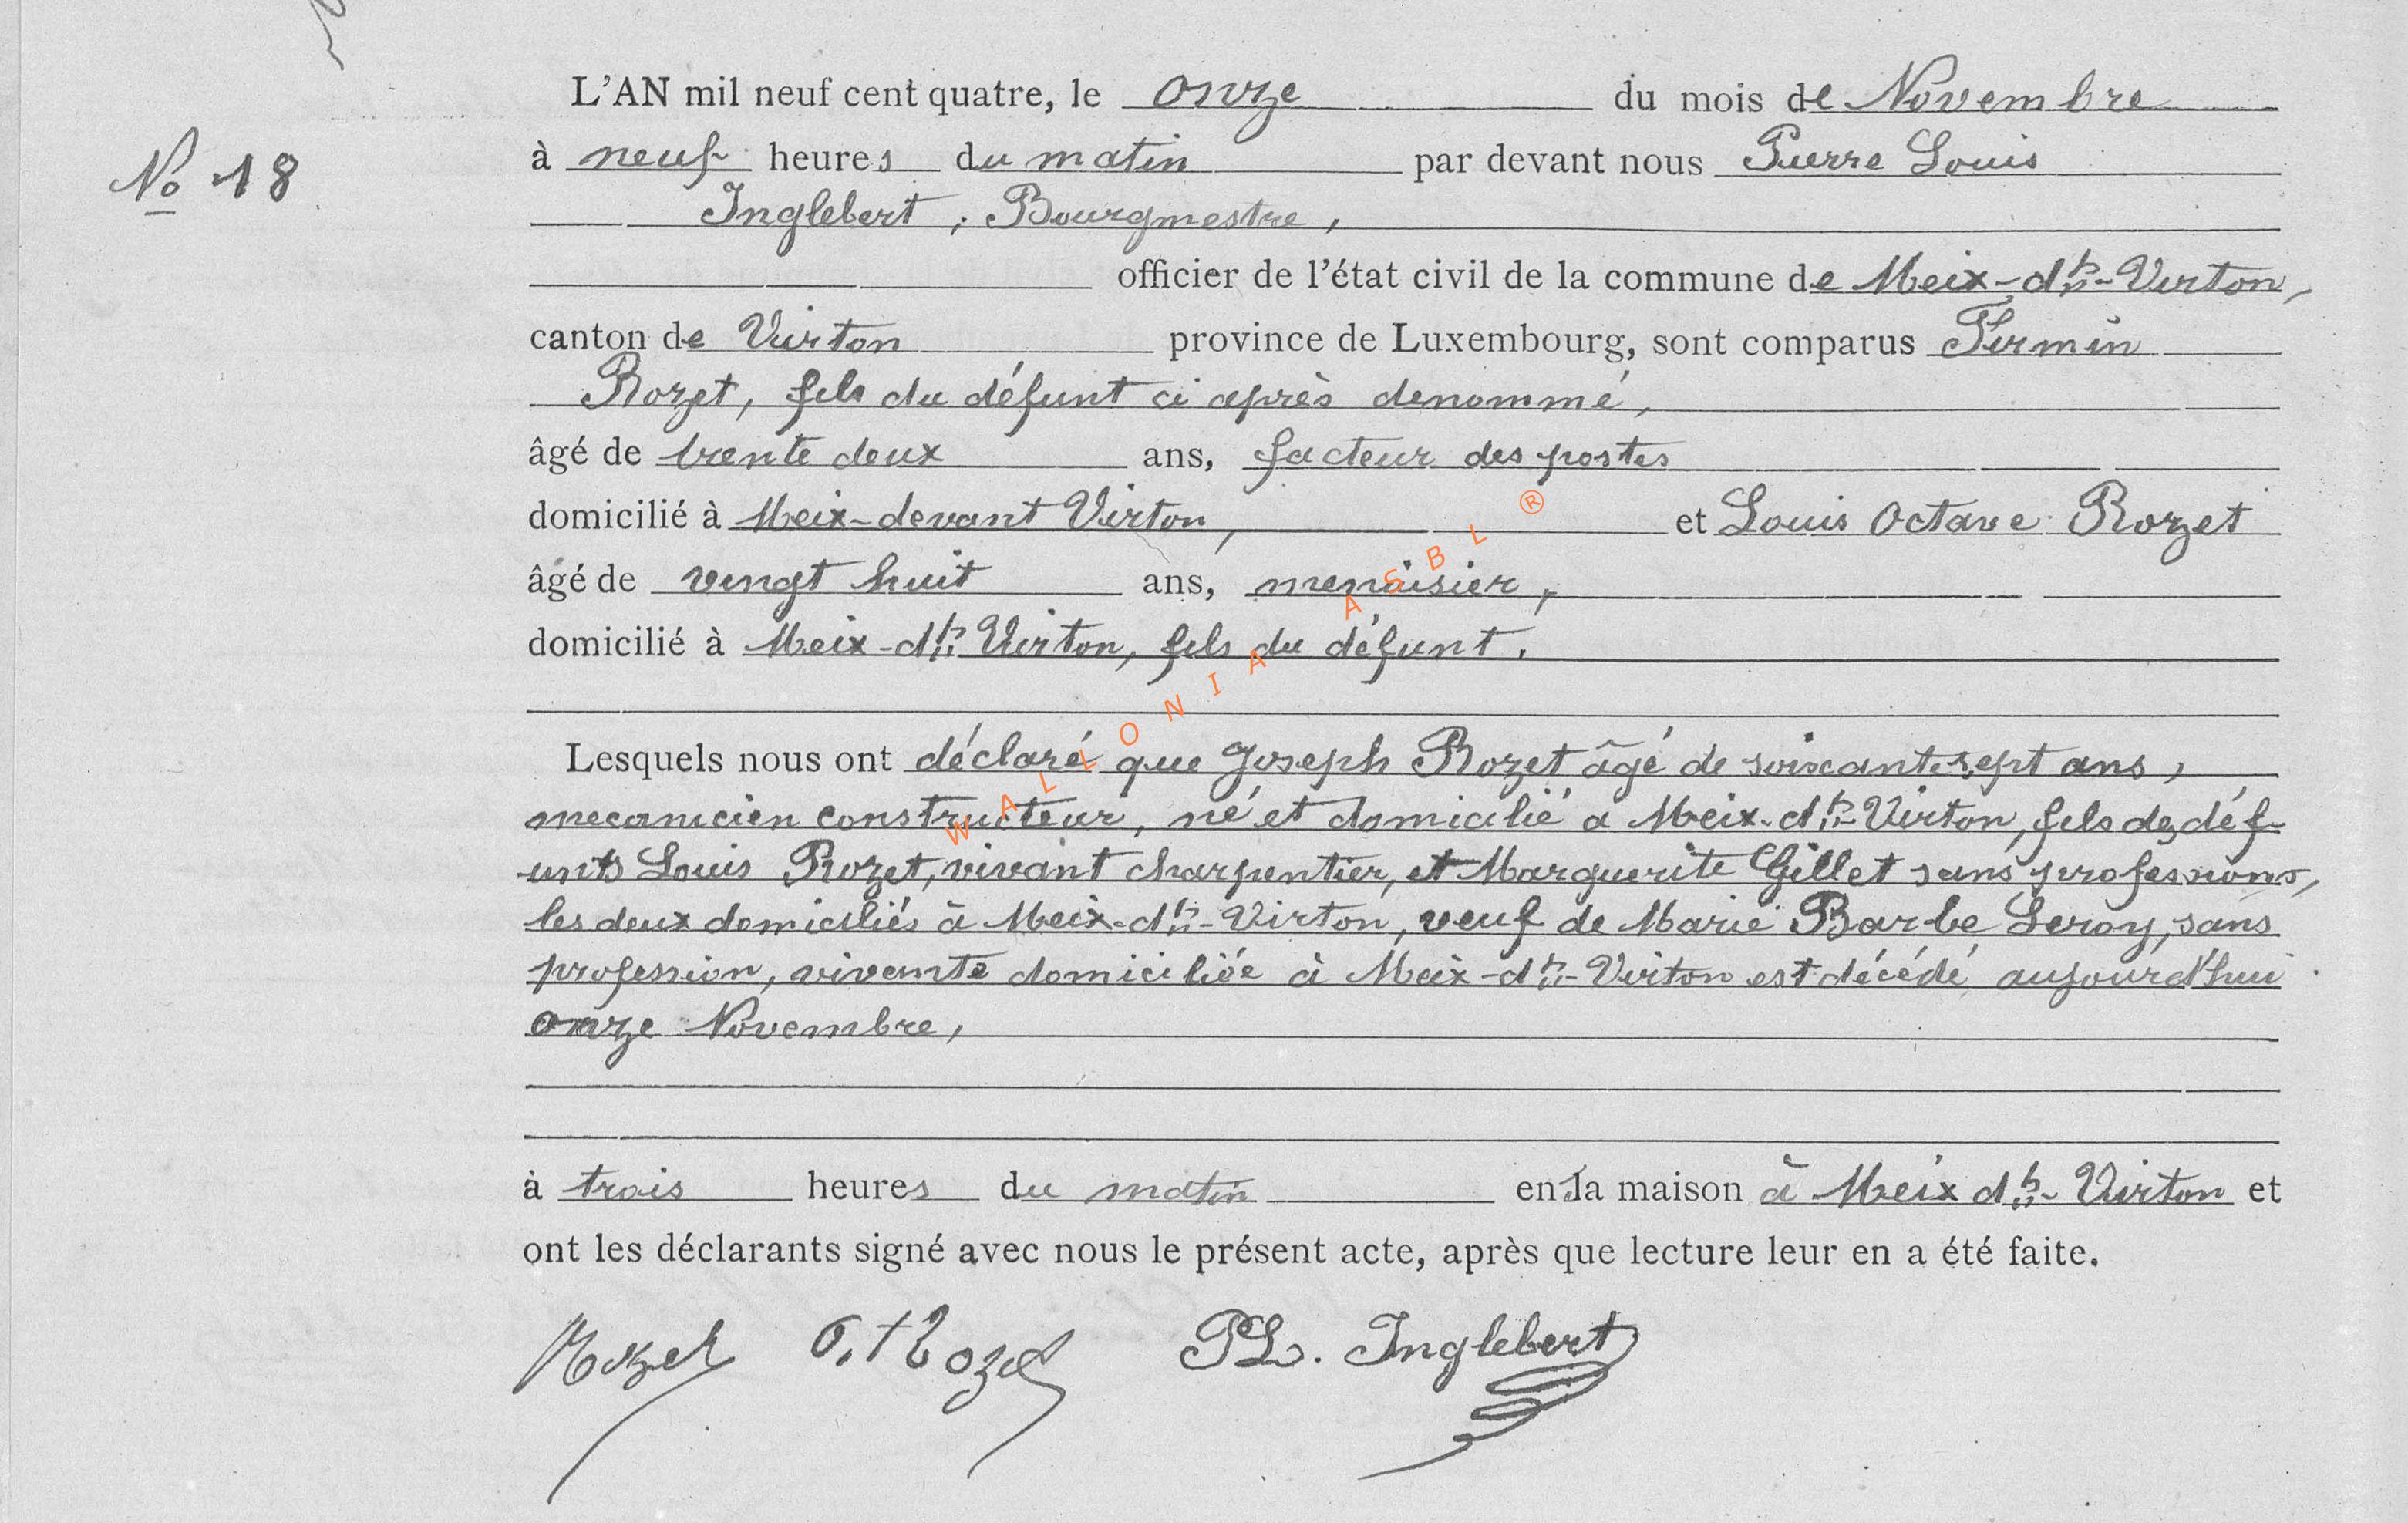 L'AN mil neuf cent quatre, le onze du mois de Novembre
No 18
à neuf heures du matin par devant nous Pierre Louis
Inglebert, Bourgmestre,
officier de l'état civil de la commune de Meix-dt-Virton,
canton de Virton province de Luxembourg, sont comparus Firmin
Rozet, fils du défunt ci après denommé,
âgé de trente deux ans, facteur des postes
domicilié à Meix-devant Virton, et Louis Octave Rozet
âgé de vingt huit ans, menuisier,
domicilié à Meix-dt Virton, fils du défunt.
Lesquels nous ont déclaré que Joseph Rozet âgé de soixante sept ans,
mecanicien constructeur, né et domicilié a Meix-dt-Virton, fils des déf-
unts Louis Rozet, vivant charpentier, et Marguerite Gillet sans professions,
les deux domiciliés à Meix-dt-Virton, veuf de Marie Barbe Leroy, sans
profession, vivante domiciliée à Meix-dt-Virton est décédé aujourd'hui
onze Novembre,
à trois heures du matin en sa maison à Meix dt-Virton et
ont les déclarants signé avec nous le présent acte, après que lecture leur en a été faite.
Rozet O. Rozet PL. Inglebert
WALLONIA ASBL ®